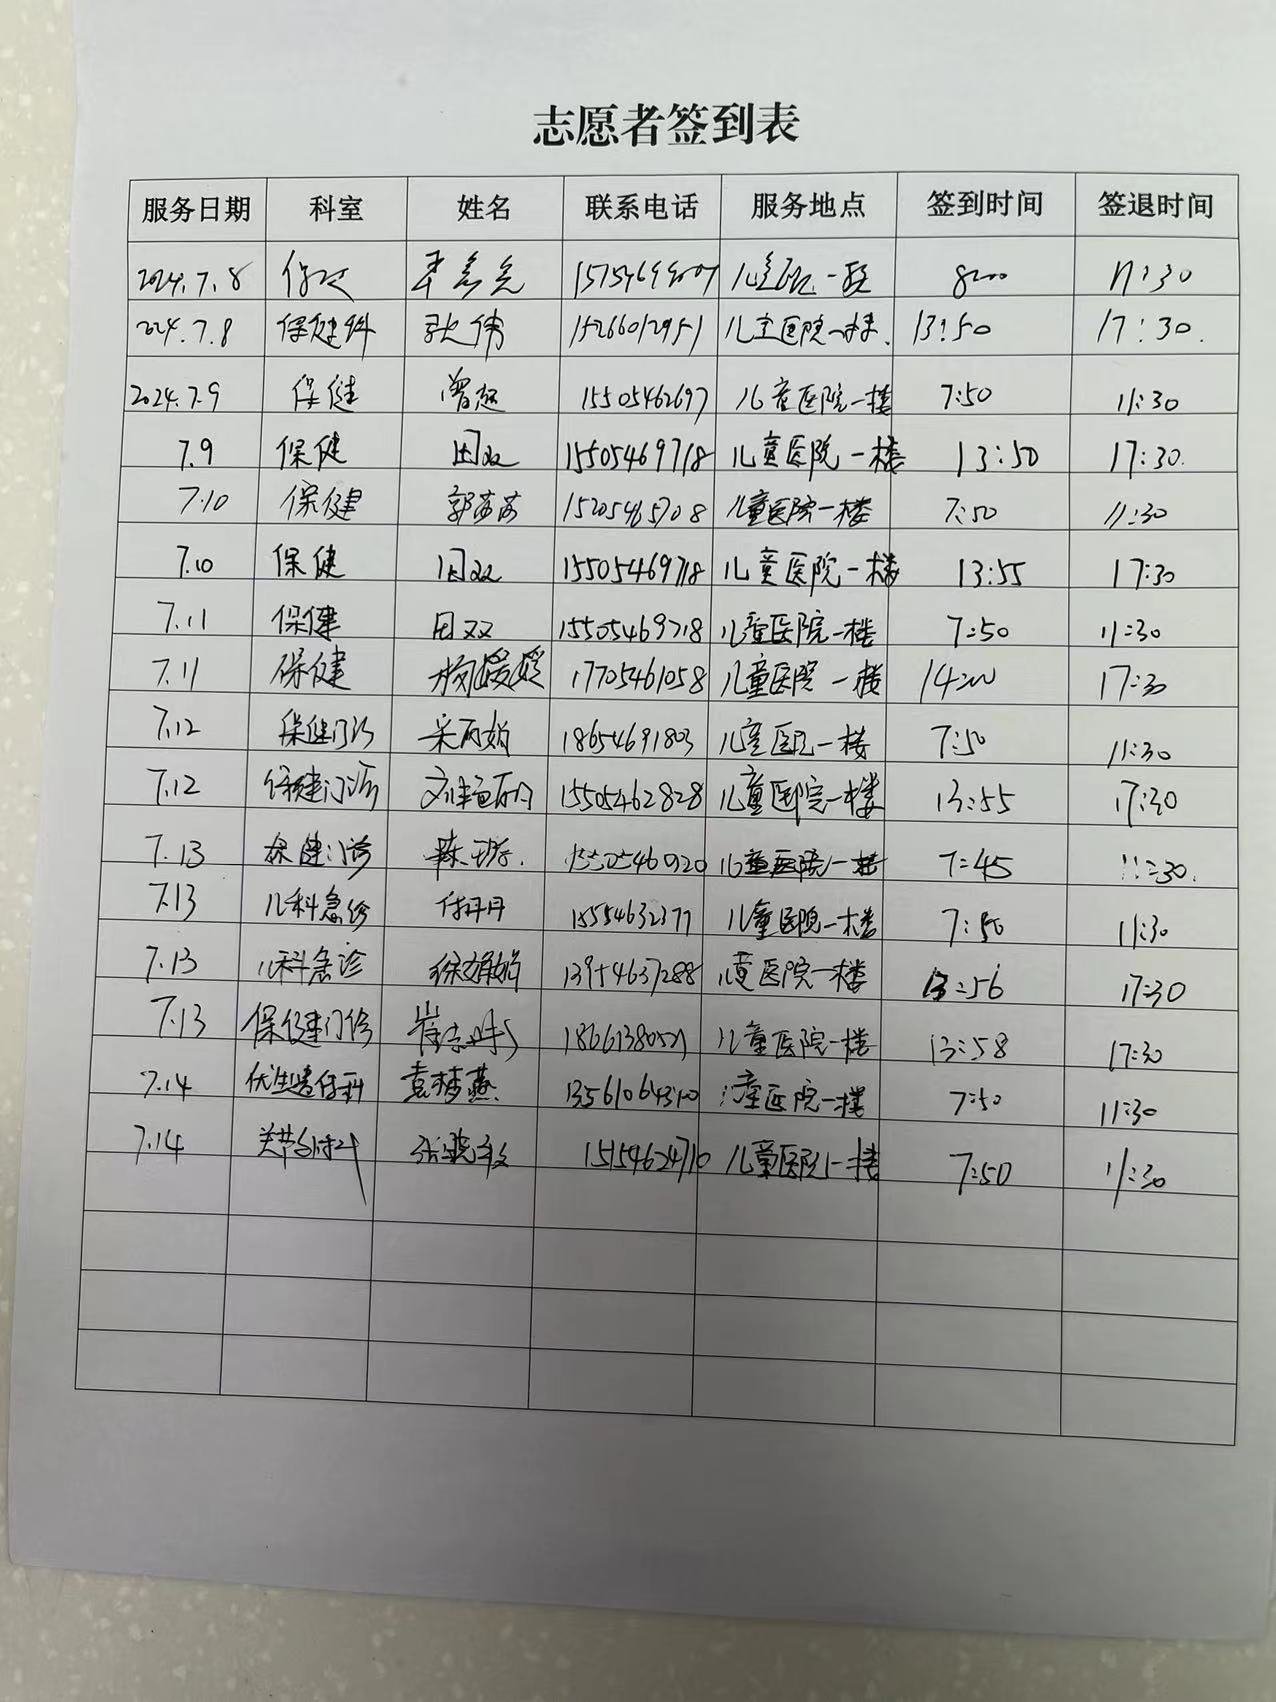 志愿者签到表
服务日期 科室 姓名 联系电话 服务地点 签到时间 签退时间
2024.7.8 8:00 11:30
2024.7.8 保健科 张伟 15266012951 儿童医院一楼. 13:50 17:30.
2024.7.9 保健 曾超 15505462697 儿童医院一楼 7:50 11:30
7.9 保健 田双 15505469718 儿童医院一楼 13:50 17:30.
7.10 保健 郭苏苏 15205465708 儿童医院一楼 7:50 11:30
7.10 保健 田双 15505469718 儿童医院一楼 13:55 17:30
7.11 保健 田双 15505469718 儿童医院一楼 7:50 11:30
7.11 保健 杨媛媛 17705461058 儿童医院一楼 14:00 17:30
7.12 保健门诊 18654691803 儿童医院一楼 7:50 11:30
7.12 保健门诊 15505462828 儿童医院一楼 13:55 17:30
7.13 保健门诊 儿童医院一楼 7:45 11:30.
7.13 儿科急诊 付丹丹 15554632377 儿童医院一楼 7:50 11:30
7.13 儿科急诊 徐娟娟 13954637288 儿童医院一楼 13:56 17:30
7.13 保健门诊 儿童医院一楼 13:58 17:30
7.14 优生遗传科 袁梦燕 儿童医院一楼 7:50 11:30
7.14 15154624710 儿童医院一楼 7:50 11:30